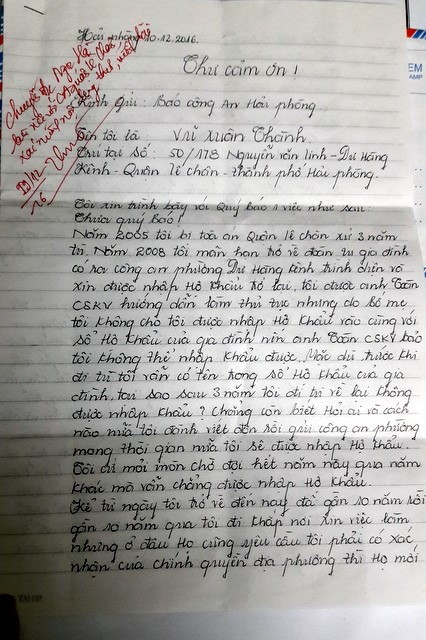 Hải phòng 10.12.2016.
Thư cảm ơn!
Kính gửi: Báo công An Hải phòng
Tên tôi là: Vũ xuân Thành
Trú tại số: 50/173 Nguyễn văn linh - Dư Hàng
Kênh - Quận lê chân - thành phố Hải phòng.
Tôi xin trình bày với Quý Báo 1 việc như sau
Thưa quý Báo!
Năm 2005 tôi bị toà án Quận lê chân xử 3 năm
tù. Năm 2008 tôi mãn hạn trở về đoàn tụ gia đình
có ra công an phường Dư Hàng kênh trình diện và
xin được nhập Hộ khẩu trở lại. tôi được anh Toàn
CSKV hướng dẫn làm thủ tục nhưng do Bố mẹ
tôi không cho tôi được nhập Hộ khẩu vào cùng với
sổ Hộ khẩu của gia đình nên anh Toàn CSKV bảo
tôi không thể nhập khẩu được. Mặc dù trước khi
đi tù tôi vẫn có tên trong sổ Hộ khẩu của gia
đình. tại sao sau 3 năm tôi đi tù về lại không
được nhập khẩu? Chẳng còn biết Hỏi ai và cách
nào nữa tôi đành viết đơn rồi gửi công an phường
mong thời gian nữa tôi sẽ được nhập Hộ khẩu.
Tôi cứ mỏi mòn chờ đợi hết năm này qua năm
khác mà vẫn chẳng được nhập Hộ khẩu.
Kể từ ngày tôi trở về đến nay đã gần 10 năm rồi
gần 10 năm qua tôi đi khắp nơi xin việc làm
nhưng ở đâu Họ cũng yêu cầu tôi phải có xác
nhận của chính quyền địa phương thì Họ mới
Chuyển đ/c Nga Hà
13/12
16
EM